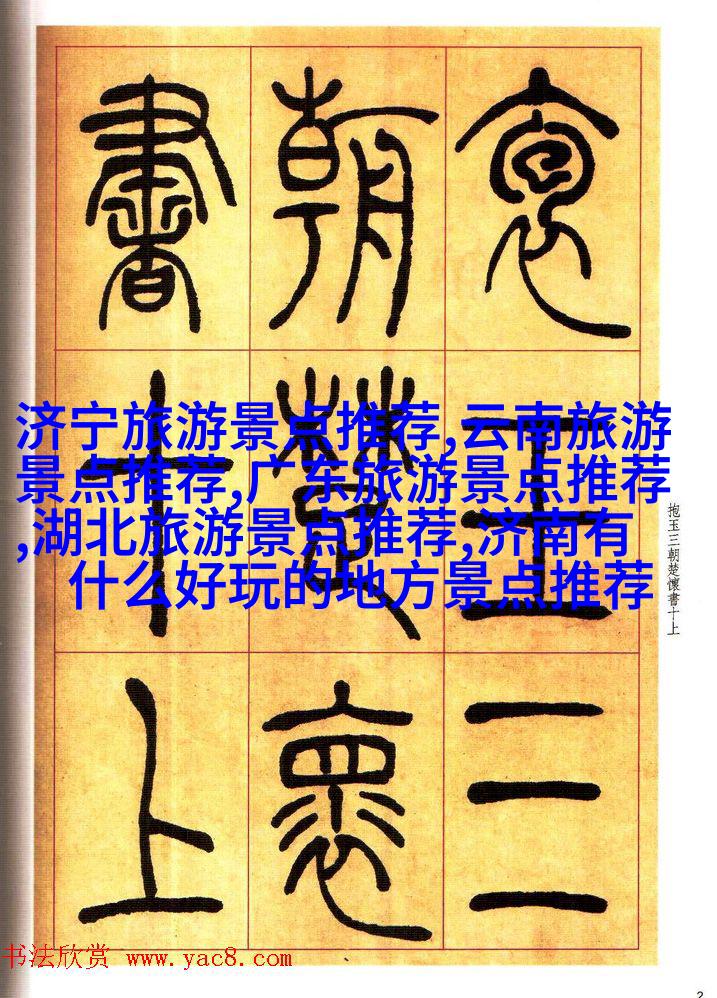 裒朝書
玉楚十
三懷上
济宁旅游景点推荐,云南旅游
景点推荐,广东旅游景点推荐
,湖北旅游景点推荐,济南有
什么好玩的地方景点推荐
抱玉三朝楚懷書十上
书法欣赏 www.yac8.com
2